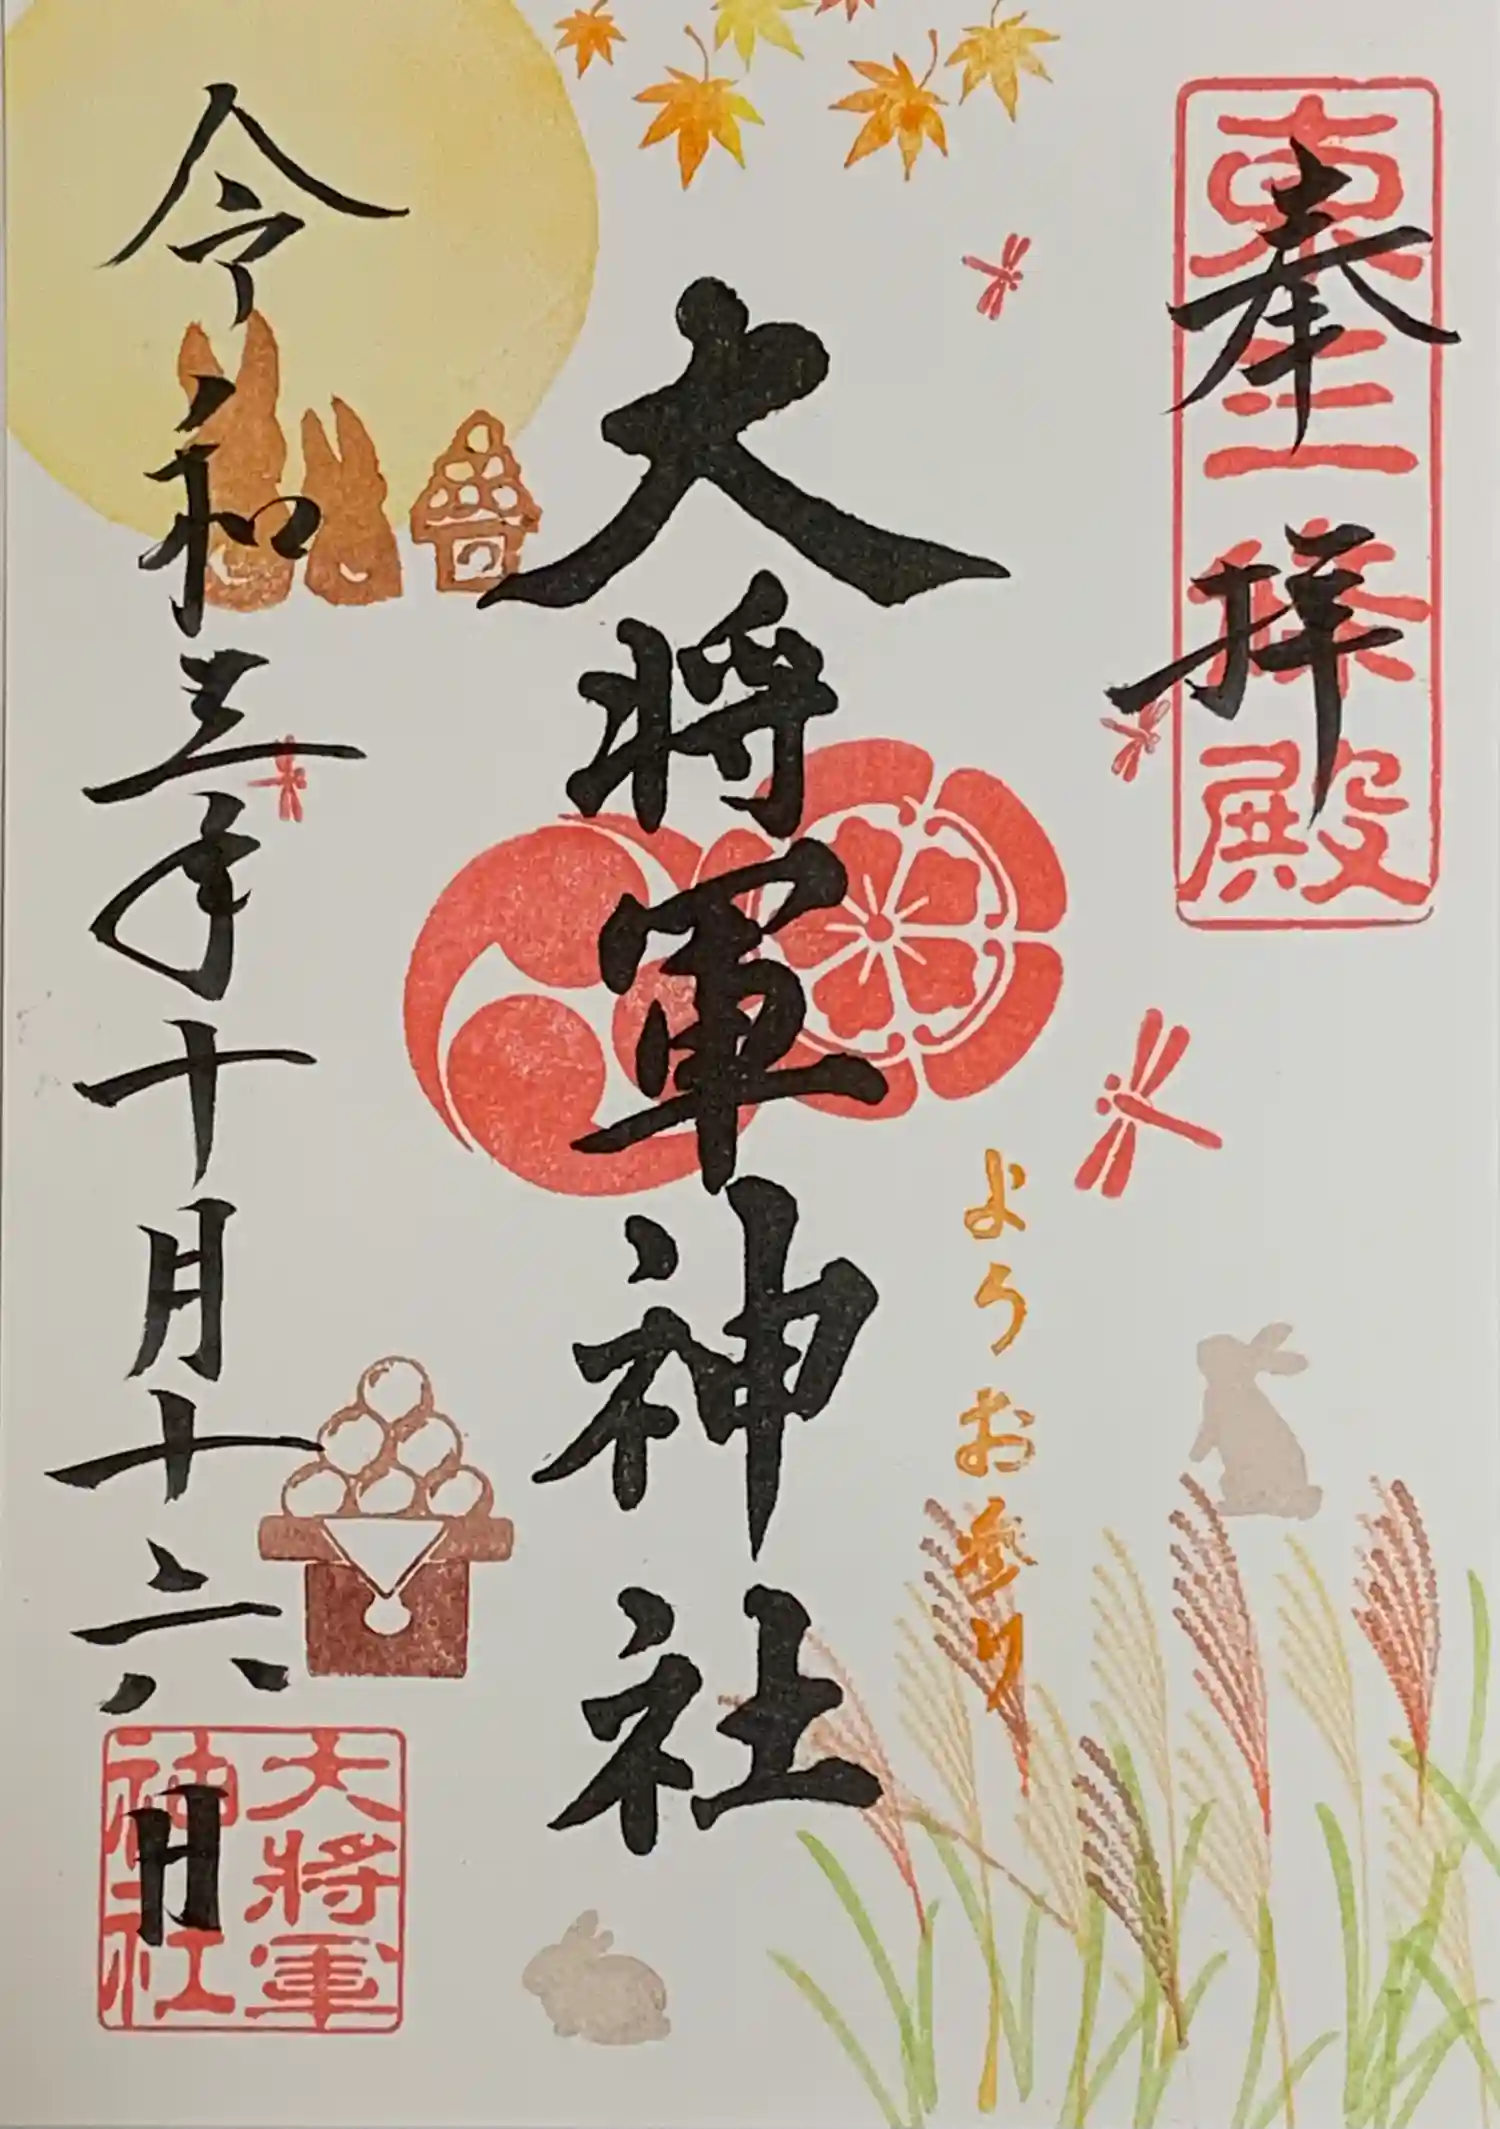 奉拝
東三條殿
よりお参り
大将軍神社
令和三年十月十六日
大將軍
神社